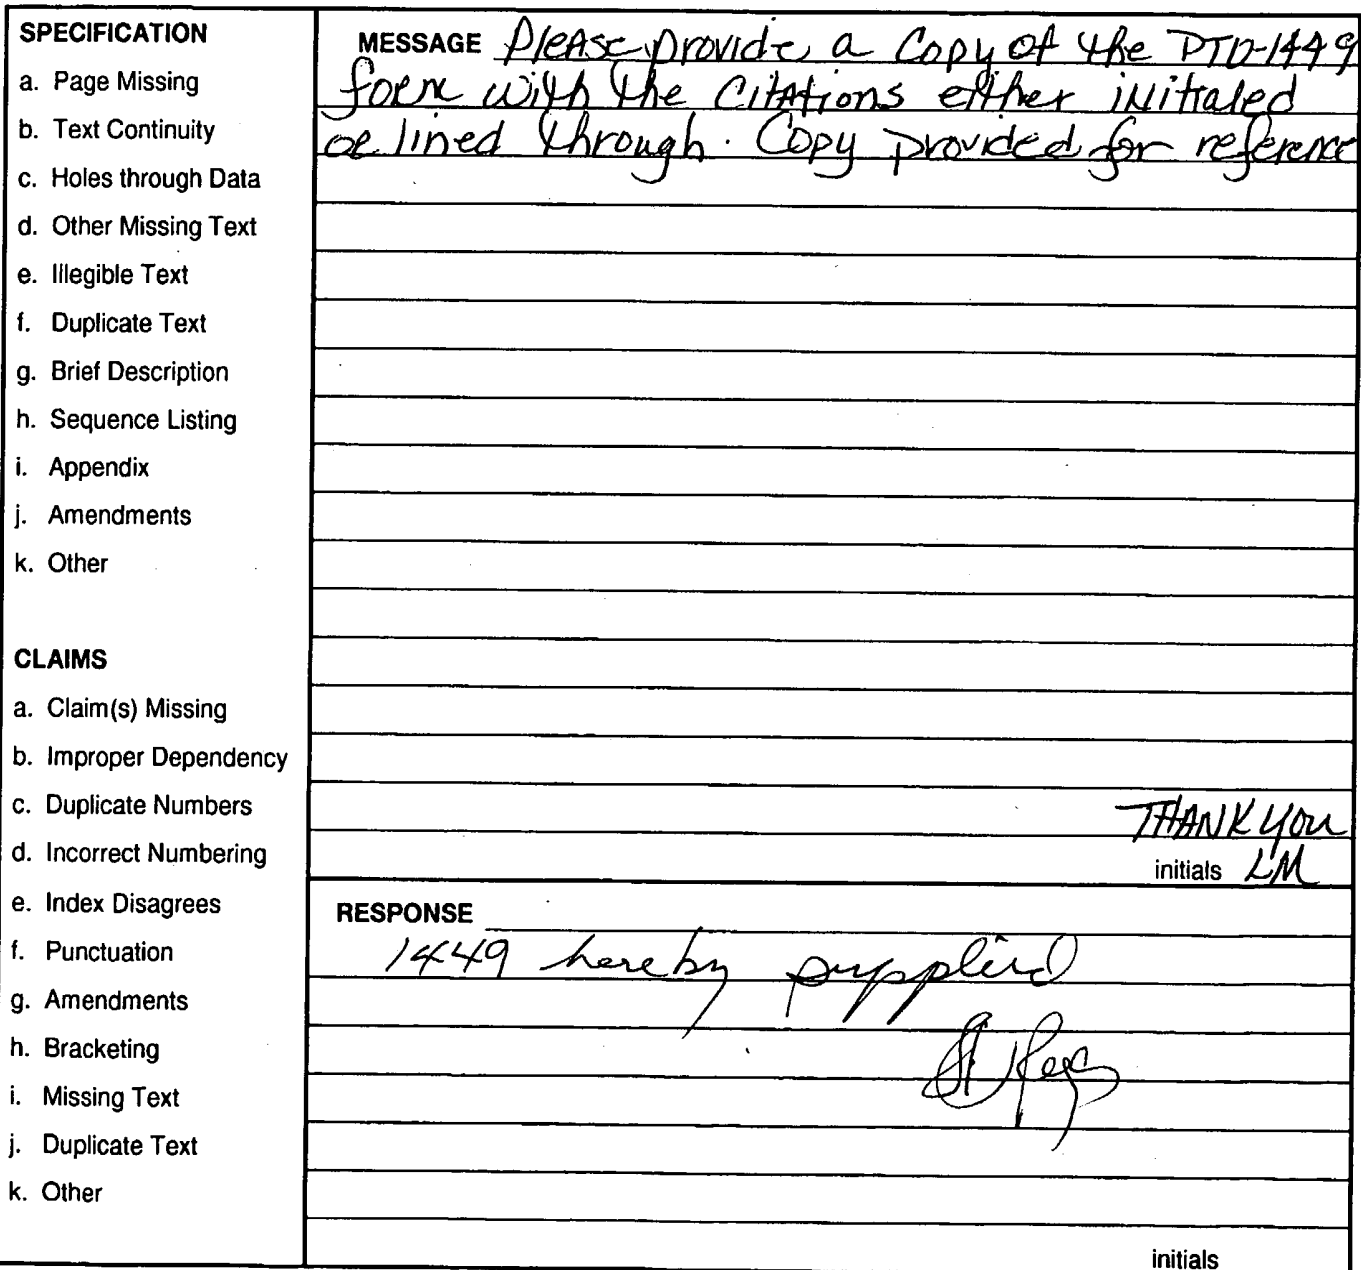 SPECIFICATION
a. Page Missing
b. Text Continuity
c. Holes through Data
d. Other Missing Text
e. Illegible Text
f. Duplicate Text
g. Brief Description
h. Sequence Listing
i. Appendix
j. Amendments
k. Other
CLAIMS
a. Claim(s) Missing
b. Improper Dependency
c. Duplicate Numbers
d. Incorrect Numbering
e. Index Disagrees
f. Punctuation
g. Amendments
h. Bracketing
i. Missing Text
j. Duplicate Text
k. Other
MESSAGE Please provide a Copy of the PTO-1449
form with the Citations either initialed
or lined through. Copy provided for reference
THANK YOU
initials LM
RESPONSE
1449 hereby supplied
initials